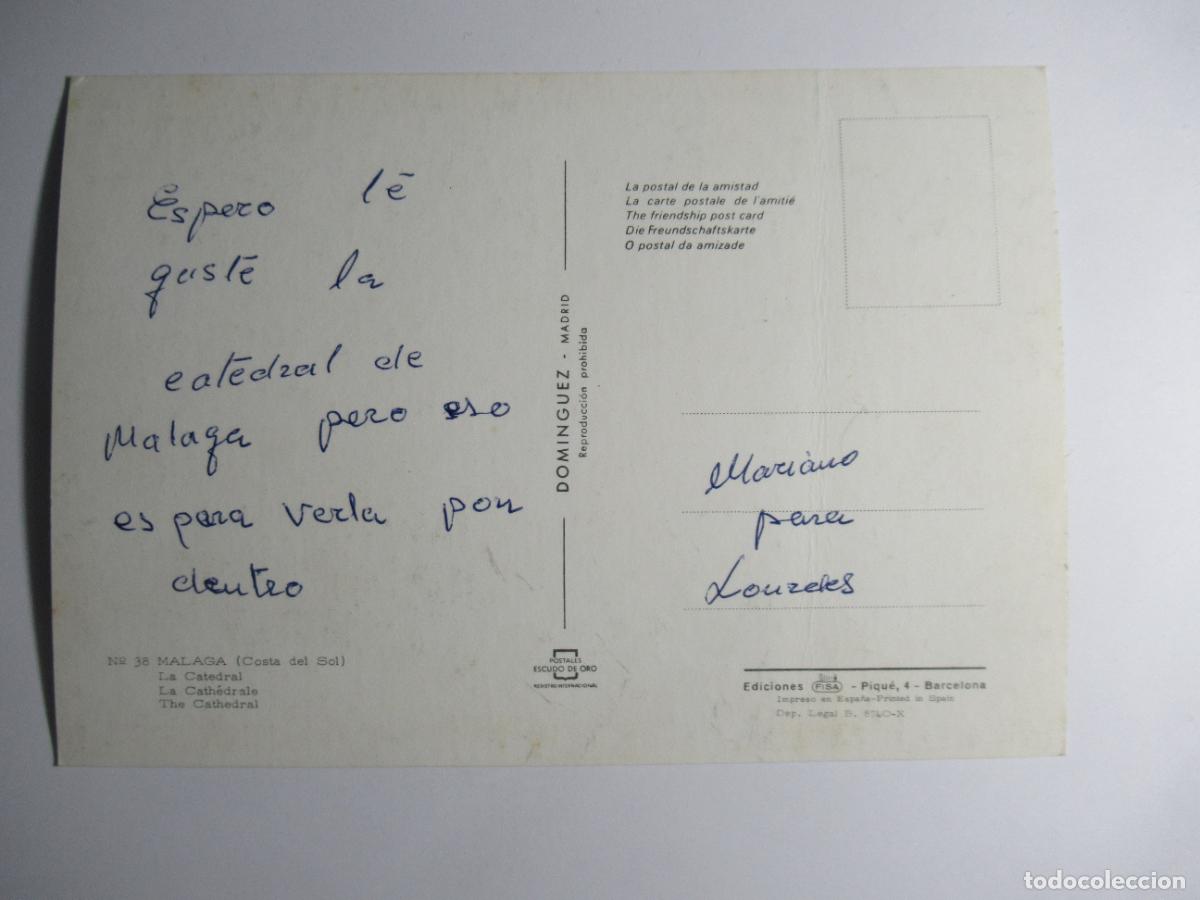 Espero té
gusté la
catédral de
Malaga pero eso
es para verla por
dentro
Nº 38 MALAGA (Costa del Sol)
La Catedral
La Cathédrale
The Cathedral
DOMINGUEZ - MADRID
Reproducción prohibida
POSTALES
ESCUDO DE ORO
REGISTRO INTERNACIONAL
La postal de la amistad
La carte postale de l'amitié
The friendship post card
Die Freundschaftskarte
O postal da amizade
Mariano
para
Lourdes
Ediciones FISA - Piqué, 4 - Barcelona
Impreso en España-Printed in Spain
Dep. Legal B. 8740-X
todocoleccion